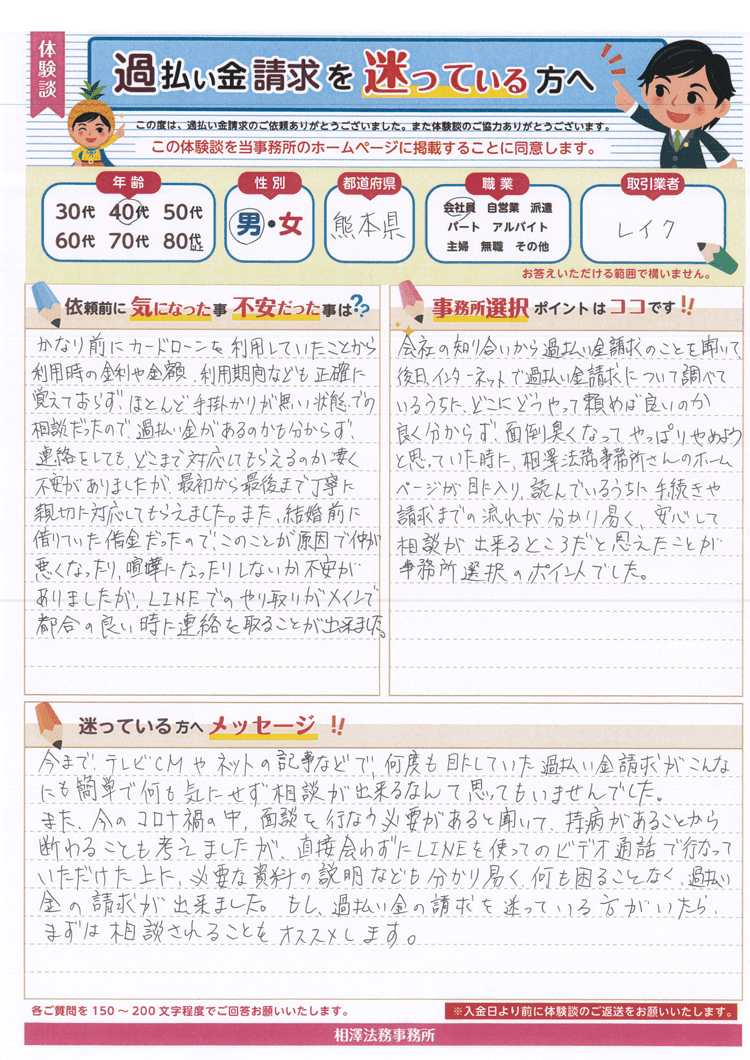 体験談
過払い金請求を迷っている方へ
この度は、過払い金請求のご依頼ありがとうございました。また体験談のご協力ありがとうございます。
この体験談を当事務所のホームページに掲載することに同意します。
年齢
30代 40代 50代
60代 70代 80代以上
性別
男・女
都道府県
熊本県
職業
会社員 自営業 派遣
パート アルバイト
主婦 無職 その他
取引業者
レイク
お答えいただける範囲で構いません。
依頼前に気になった事 不安だった事は??
かなり前にカードローンを利用していたことから
利用時の金利や金額、利用期間なども正確に
覚えておらず、ほとんど手掛かりが無い状態での
相談だったので過払い金があるのかも分からず、
連絡をしても、どこまで対応してもらえるのか凄く
不安がありましたが、最初から最後まで丁寧に
親切に対応してもらえました。また、結婚前に
借りていた借金だったので、このことが原因で仲が
悪くなったり、喧嘩になったりしないか不安が
ありましたが、LINEでのやり取りがメインで
都合の良い時に連絡を取ることが出来ました。
事務所選択ポイントはココです!!
会社の知り合いから過払い金請求のことを聞いて、
後日、インターネットで過払い金請求について調べて
いるうちに、どこにどうやって頼めば良いのか
良く分からず、面倒臭くなってやっぱりやめよう
と思っていた時に、相澤法務事務所さんのホーム
ページが目に入り、読んでいるうちに手続きや
請求までの流れが分かり易く、安心して
相談が出来るところだと思えたことが
事務所選択のポイントでした。
迷っている方へメッセージ!!
今まで、テレビCMやネットの記事などで、何度も目にしていた過払い金請求がこんな
にも簡単で何も気にせず相談が出来るなんて思ってもいませんでした。
また、今のコロナ禍の中、面談を行なう必要があると聞いて、持病があることから
断わることも考えましたが、直接会わずにLINEを使ってのビデオ通話で行なって
いただけた上に、必要な資料の説明なども分かり易く、何も困ることなく、過払い
金の請求が出来ました。もし、過払い金の請求を迷っている方がいたら、
まずは相談されることをオススメします。
各ご質問を150〜200文字程度でご回答お願いいたします。
※入金日より前に体験談のご返送をお願いいたします。
相澤法務事務所